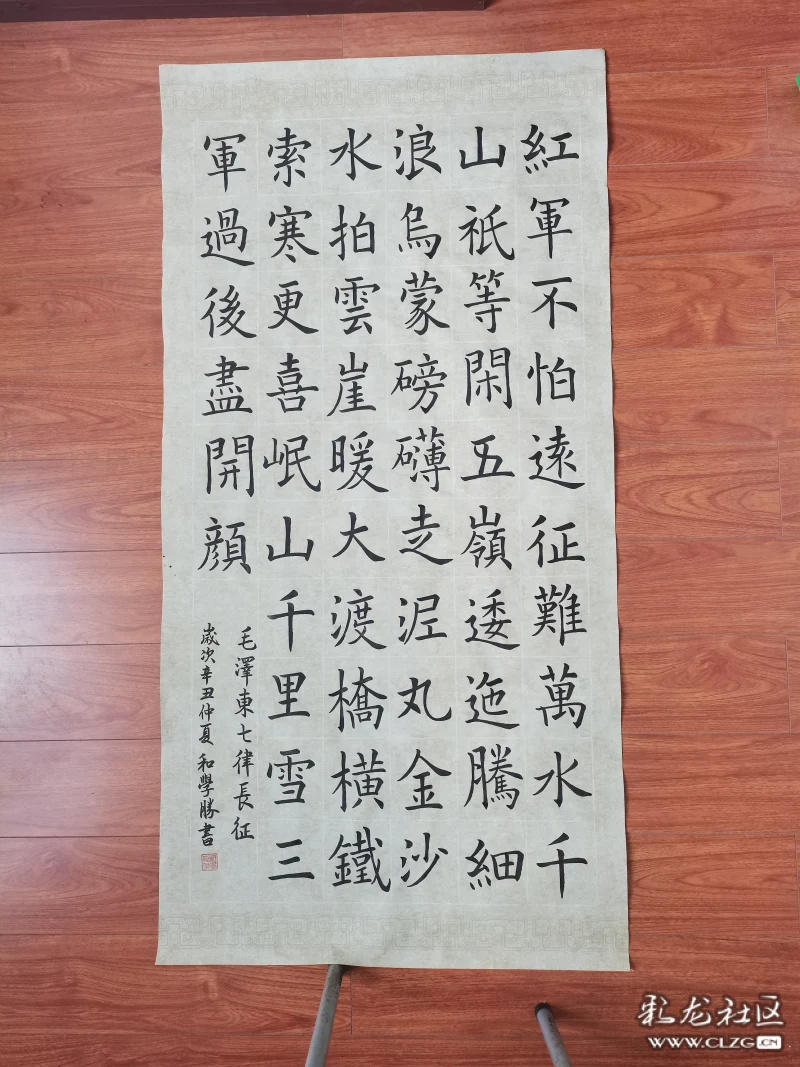 紅軍不怕遠征難萬水千
山祇等閑五嶺逶迤騰細
浪烏蒙磅礴走泥丸金沙
水拍雲崖暖大渡橋橫鐵
索寒更喜岷山千里雪三
軍過後盡開顏
毛澤東七律長征
歲次辛丑仲夏 和學勝書
彩龙社区
WWW.CLZG.CN